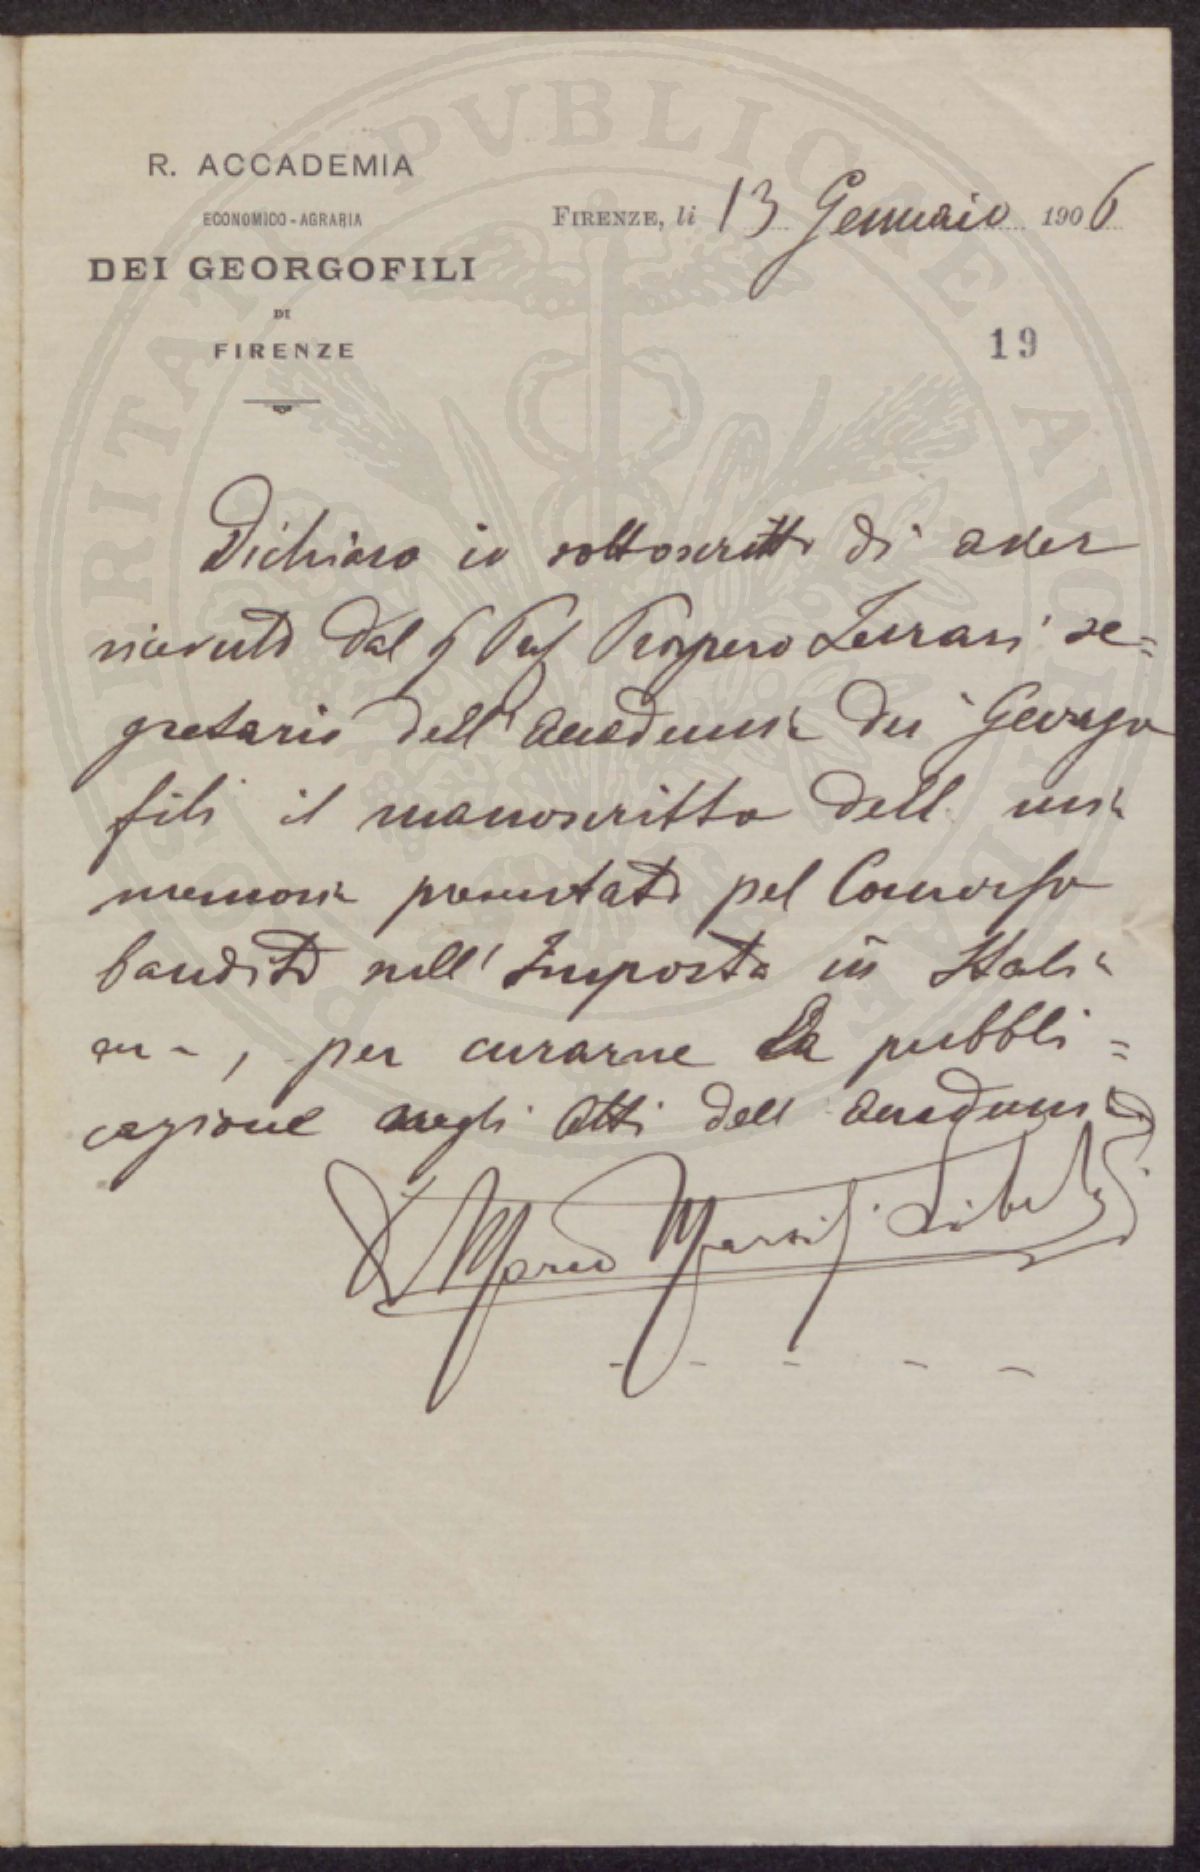 R. ACCADEMIA
ECONOMICO-AGRARIA
DEI GEORGOFILI
DI
FIRENZE
FIRENZE, li 13 Gennaio 1906
19
Dichiaro io sottoscritto di aver
ricevuto dal Prof Prospero Ferrari se=
gretario dell'Accademia dei Georgo
fili il manoscritto dell mia
memoria presentata pel Concorso
bandito sull'Imposta in Itali
per curarne la pubbli=
cazione negli Atti dell Accademia
Marco Marsili Libelli
PROSPERITATI PVBLICAE AVGENDAE